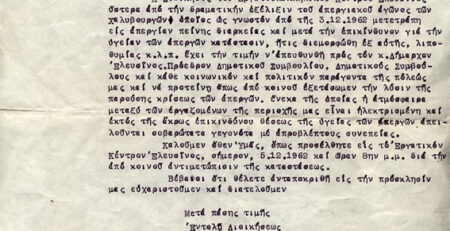 ὕστερα ἀπό τήν δραματικήν ἐξέλιξιν τοῦ ἀπεργιακοῦ ἀγῶνος τῶν
χαλυβουργῶν ὁ ὁποῖος ὡς γνωστόν ἀπό τῆς 3.12.1962 μετετράπη
εἰς ἀπεργίαν πείνης διαρκείας καί μετά τήν ἐπικίνδυνον γιά τήν
ὑγείαν τῶν ἀπεργῶν κατάστασιν, ἥτις διεμορφώθη ἐξ αὐτῆς, λιπο-
θυμίας κ.λ.π. ἔχει τήν τιμήν ν'ἀπευθυνθῆ πρός τόν κ.Δήμαρχον
Ἐλευσῖνος.Πρόεδρον Δημοτικοῦ Συμβουλίου, Δημοτικούς Συμβού-
λους καί κάθε κοινωνικόν καί πολιτικόν παράγοντα τῆς πόλεώς
μας καί νά προτείνη ὅπως ἀπό κοινοῦ ἐξετάσωμεν τήν λύσιν τῆς
παρούσης κρίσεως τῶν ἀπεργῶν, ἕνεκα τῆς ὁποίας ἡ ἀτμόσφαιρα
μεταξύ τῶν ἐργαζομένων τῆς περιοχῆς μας εἶναι ἠλεκτρισμένη καί
ἐκτός τῆς ἄκρως ἐπικινδύνου θέσεως τῆς ὑγείας τῶν ἀπεργῶν ἀπει-
λοῦνται σοβαρώτατα γεγονότα μέ ἀπροβλέπτους συνεπείας.
Καλοῦμεν ὅθεν Ὑμᾶς, ὅπως προσέλθητε εἰς τό Ἐργατικόν
Κέντρον Ἐλευσῖνος, σήμερον, 5.12.1962 καί ὥραν 8ην μ.μ. διά τήν
ἀπό κοινοῦ ἀντιμετώπισιν τῆς καταστάσεως.
Βέβαιοι ὅτι θέλετε ἀνταποκριθῆ εἰς τήν πρόσκλησίν
μας εὐχαριστοῦμεν καί διατελοῦμεν
Μετά πάσης τιμῆς
Ἐντολῆ Διοικήσεως